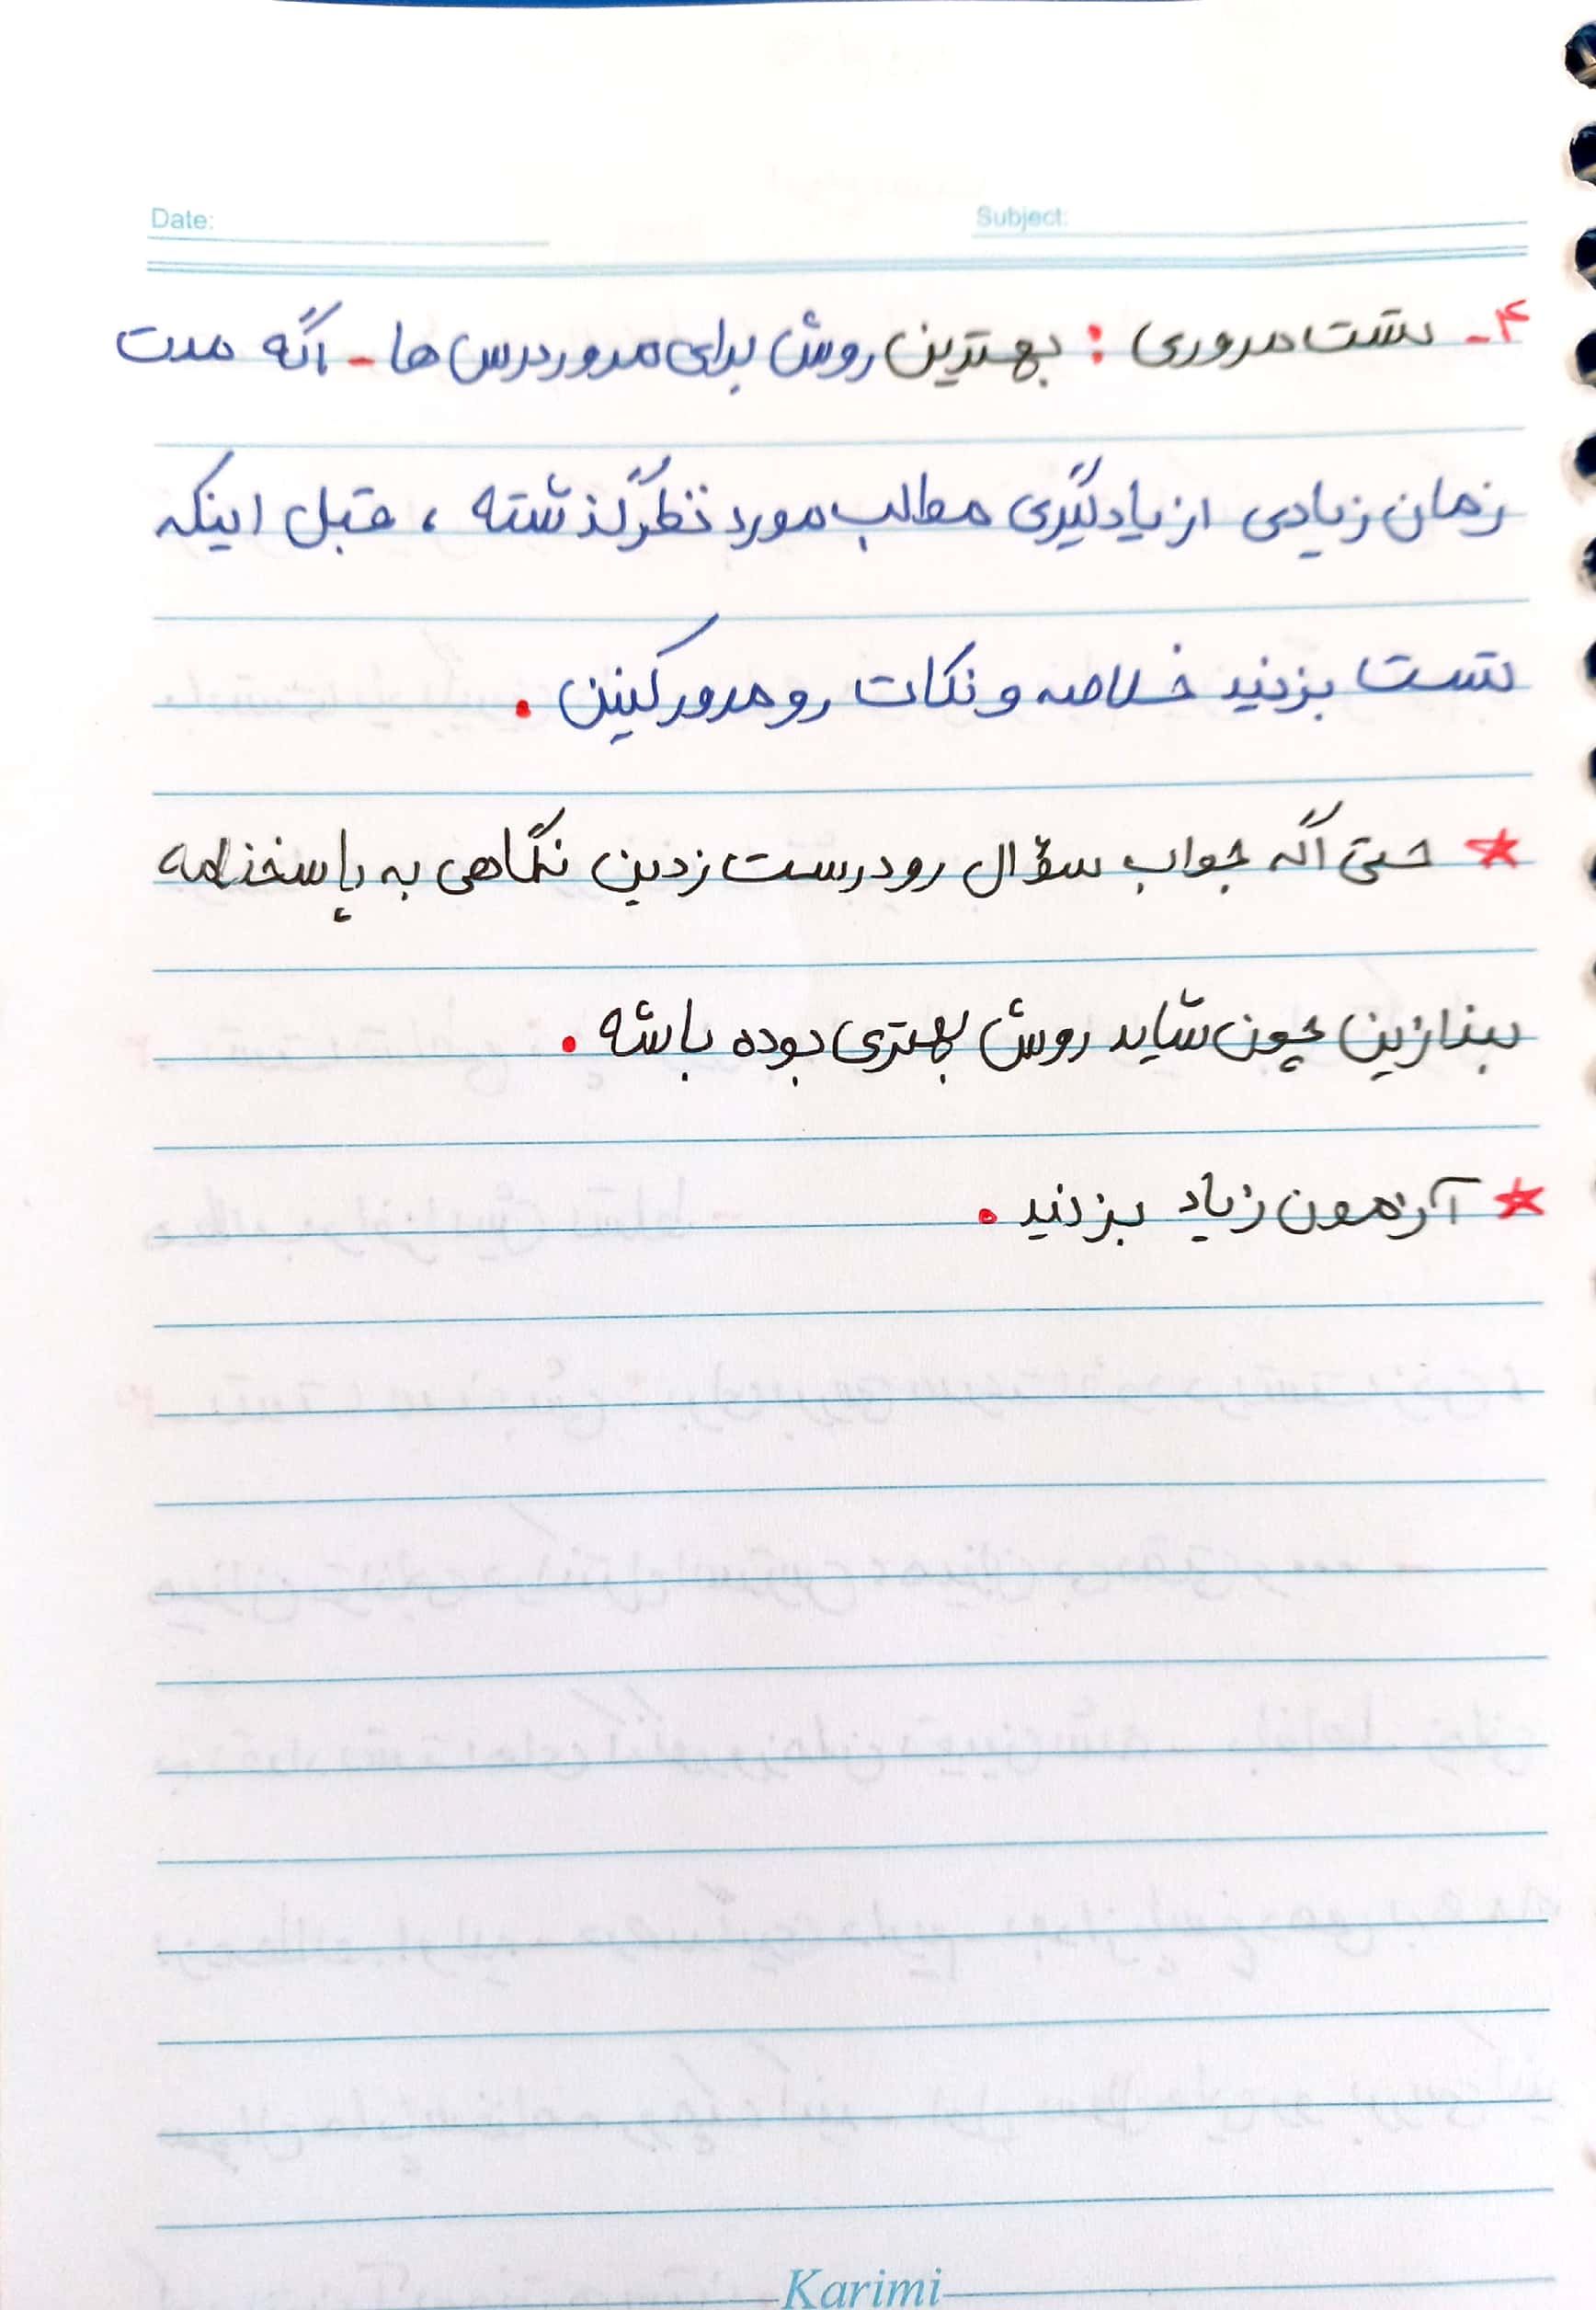 Date: Subject:
۴- تست مروری : بهترین روش برای مرور درس ها - اگه مدت
زمان زیادی از یادگیری مطالب مورد نظر گذشته ، قبل اینکه
تست بزنید خلاصه و نکات رو مرور کنین .
★ حتی اگه جواب سؤال رو درست زدین نگاهی به پاسخنامه
بندازین چون شاید روش بهتری بوده باشه .
★ آزمون زیاد بزنید .
Karimi